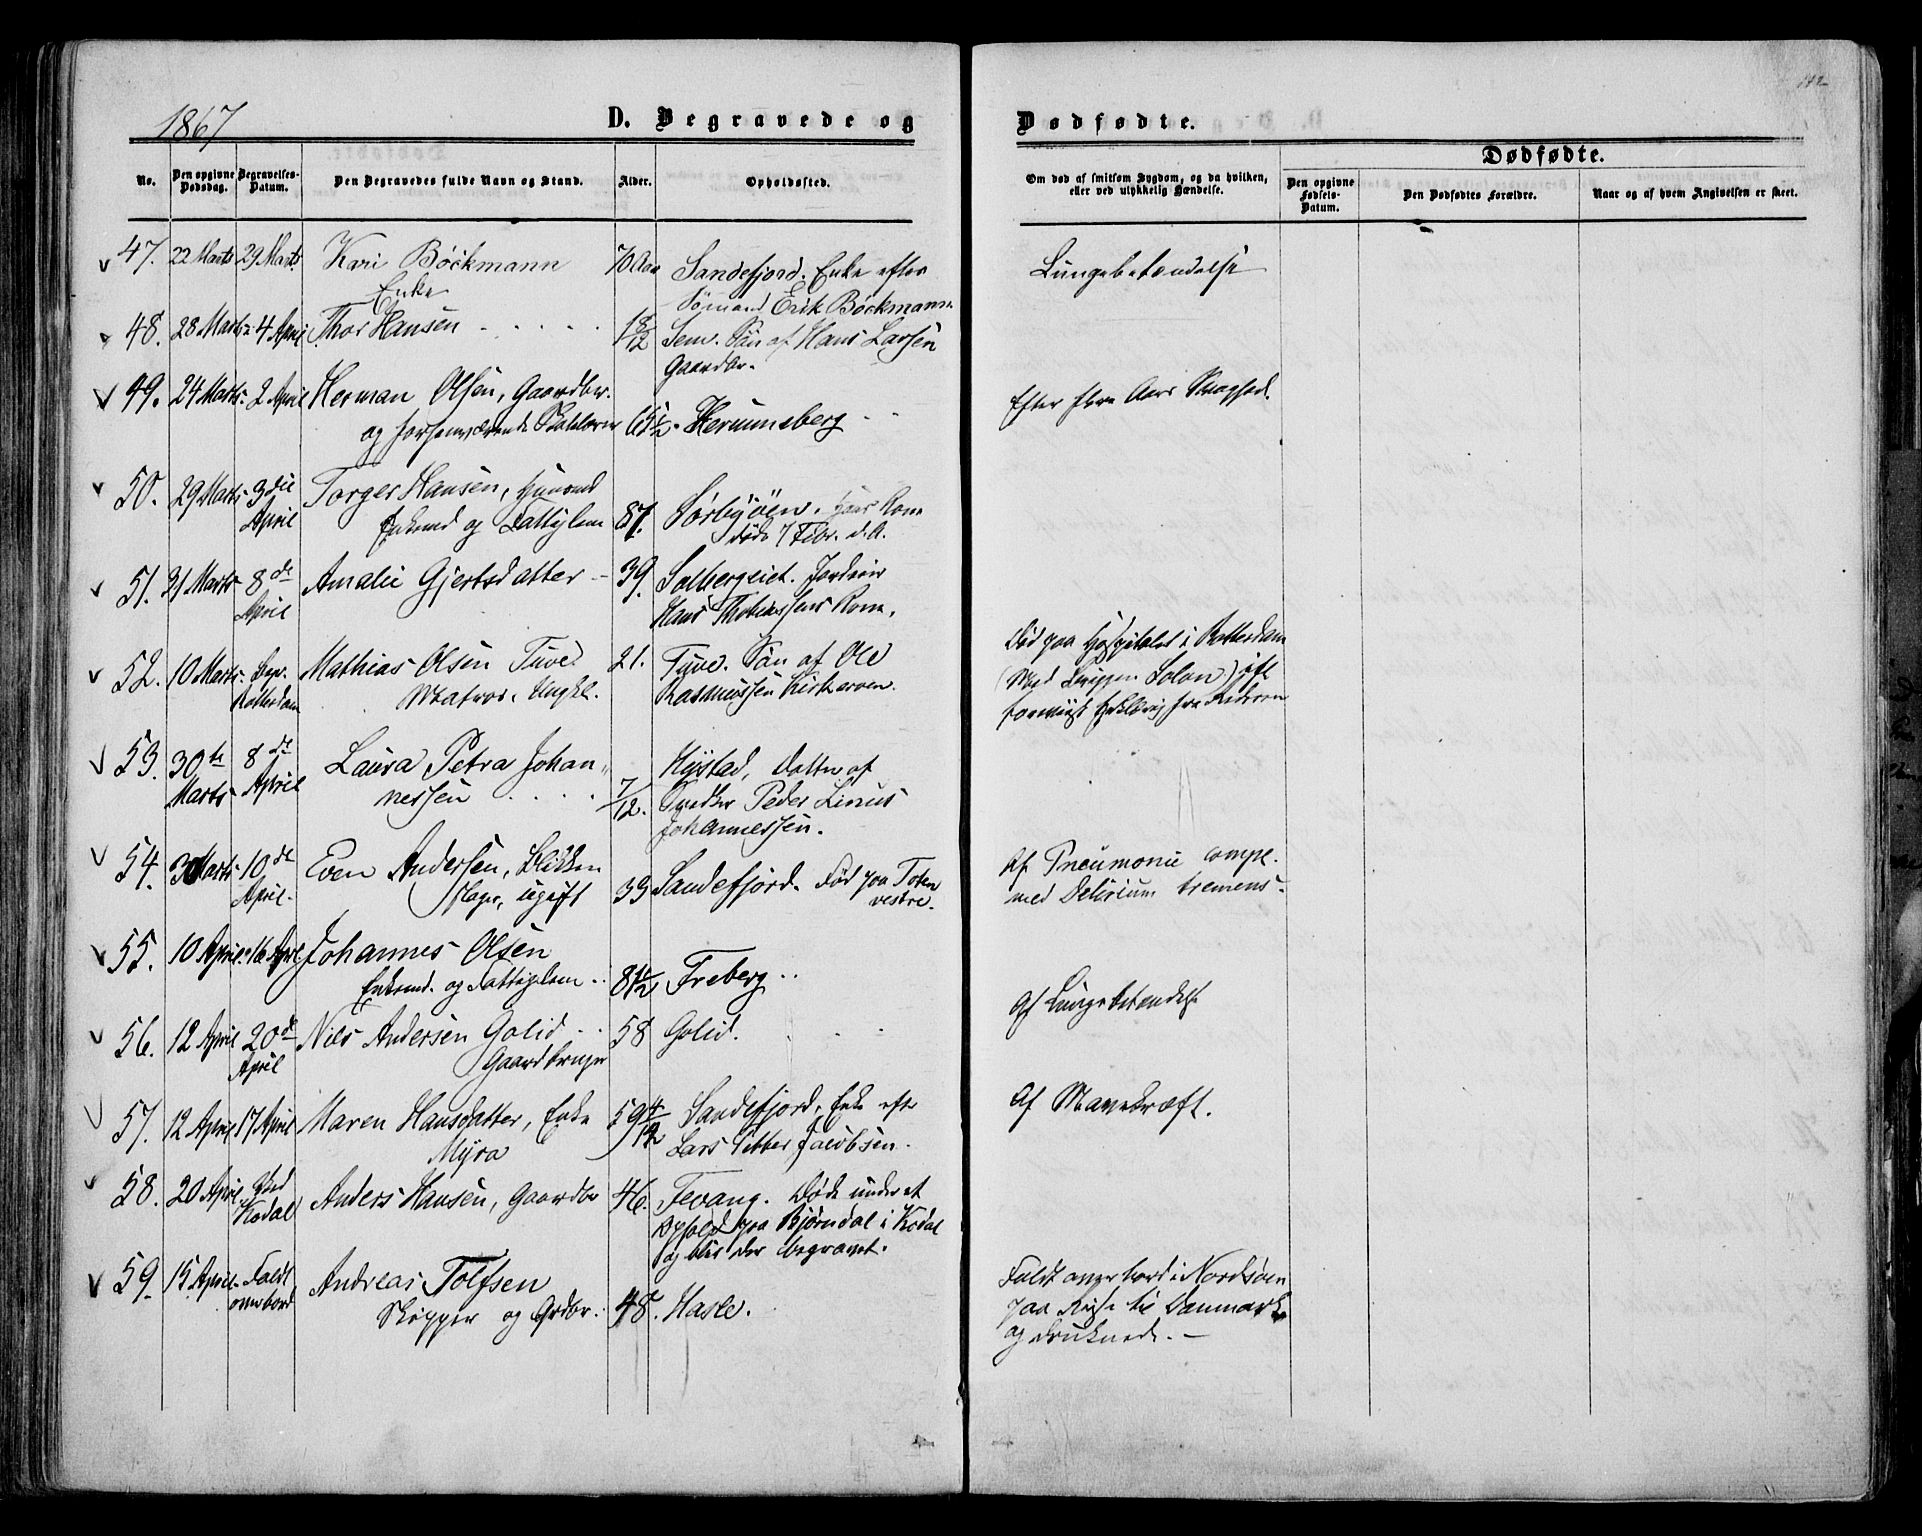 142
1867
D. Begravede og
Dødfødte.
No.
Den opgivne Dødsdag.
Begravelses-Datum.
Den Begravedes fulde Navn og Stand.
Alder.
Opholdssted.
Om død af smitsom Sygdom, og da hvilken, eller ved ulykkelig Hændelse.
Dødfødte.
Den opgivne Fødsels-Datum.
Den Dødfødtes Forældre.
Naar og af hvem Angivelsen er skeet.
47. 22 Marts 29 Marts Kari Bøckmann 70 Aar Sandefjord. Enke efter Lungebetændelse
Enke Sømand Erik Bøckmann
48. 28 Marts 4 April Thor Hansen 1 8/12 Sem. Søn af Hans Larsen
Gaardbr.
49. 24 Marts 2 April Herman Olsen, Gaardbr. Efter flere Aars Svaghed.
og forhenværende Skolelærer 65 1/2 Herumsberg
50. 29 Marts 3die Torger Hansen, Huusmd
April Enkemd og Fattiglem 87. Sørbyöen. Hans Kone
døde 7 Febr. d.A.
51. 31 Marts 8de Amalie Gjertsdatter 39. Solbergeiet. Jordeier
April Hans Thobiassens Kone.
52. 10 Marts Begr. Mathias Olsen Tuve 21. Tuve. Søn af Ole Død paa Hospitalet i Rotterdam
Rotterdam Matros. Ungkl. Rasmussen Kirkeroen. (Med Briggen Solon) ifl.
fra Rederen
53. 30te 8de Laura Petra Johan- Hystad, Datter af
Marts April nessen 7/12. Snedker Peder Linus
Johannessen.
54. 30 Marts 10de Even Andersen, Blikken Af Pneumonie compl.
April. slager, ugift 33 Sandefjord. Født paa Toten med Delirium tremens.
vestre.
55. 10 April 16 April Johannes Olsen
Enkemd. og Fattiglem 81 1/2 Freberg Af Lungebetændelse
56. 12 April 20de Nils Andersen Golid 58 Golid.
April Gaardbruger
57. 12 April 17 April Maren Hansdatter, Enke 59 4/12 Sandefjord, Enke efter Af Mavekræft.
Myra Lars Petter Jacobsen.
58. 20 April Ved Anders Hansen, Gaardbr 46. Fevang. Døde under et
Kodal Ophold paa Bjørndal i Kodal
og blev der begravet.
59. 15 April Faldt Andreas Tolfsen Faldt overbord i Nordsøen
overbord Skipper og Grdbr. 48. Hasle. paa Reise til Danmark
og druknede.